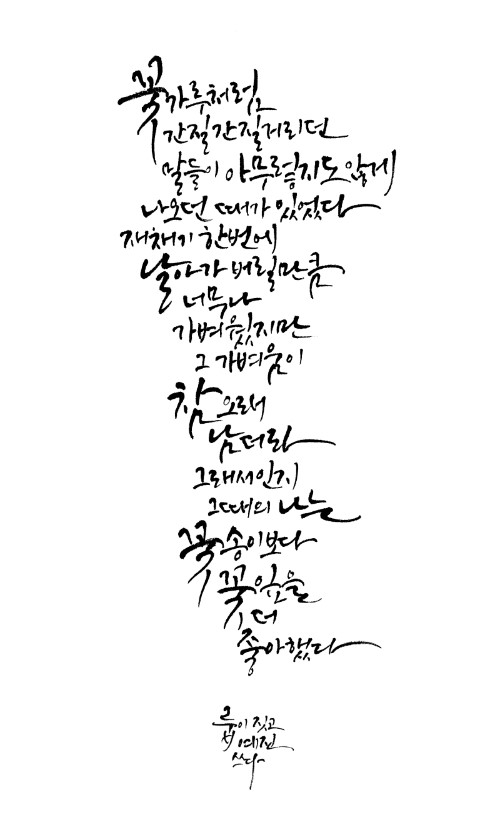 꽃가루처럼
간질간질거리던
말들이 아무렇지도 않게
나오던 때가 있었다
재채기 한번에
날아가 버릴만큼
너무나
가벼웠지만
그 가벼움이
참 오래
남더라
그래서인지
그때의 나는
꽃송이보다
꽃잎을
더
좋아했다
이 짓고
예진
쓰다